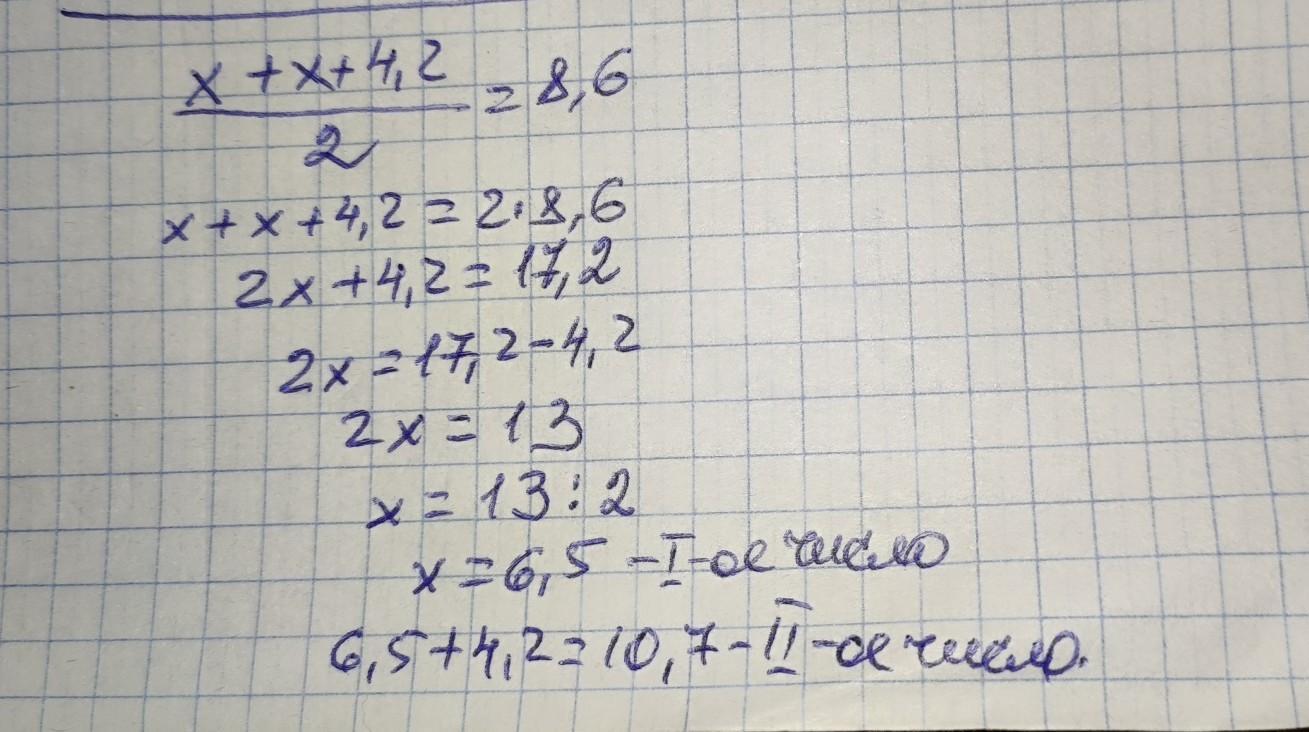 x + x + 4,2
2
= 8,6
x + x + 4,2 = 2 · 8,6
2x + 4,2 = 17,2
2x = 17,2 - 4,2
2x = 13
x = 13 : 2
x = 6,5 - I-ое число
6,5 + 4,2 = 10,7 - II-ое число.